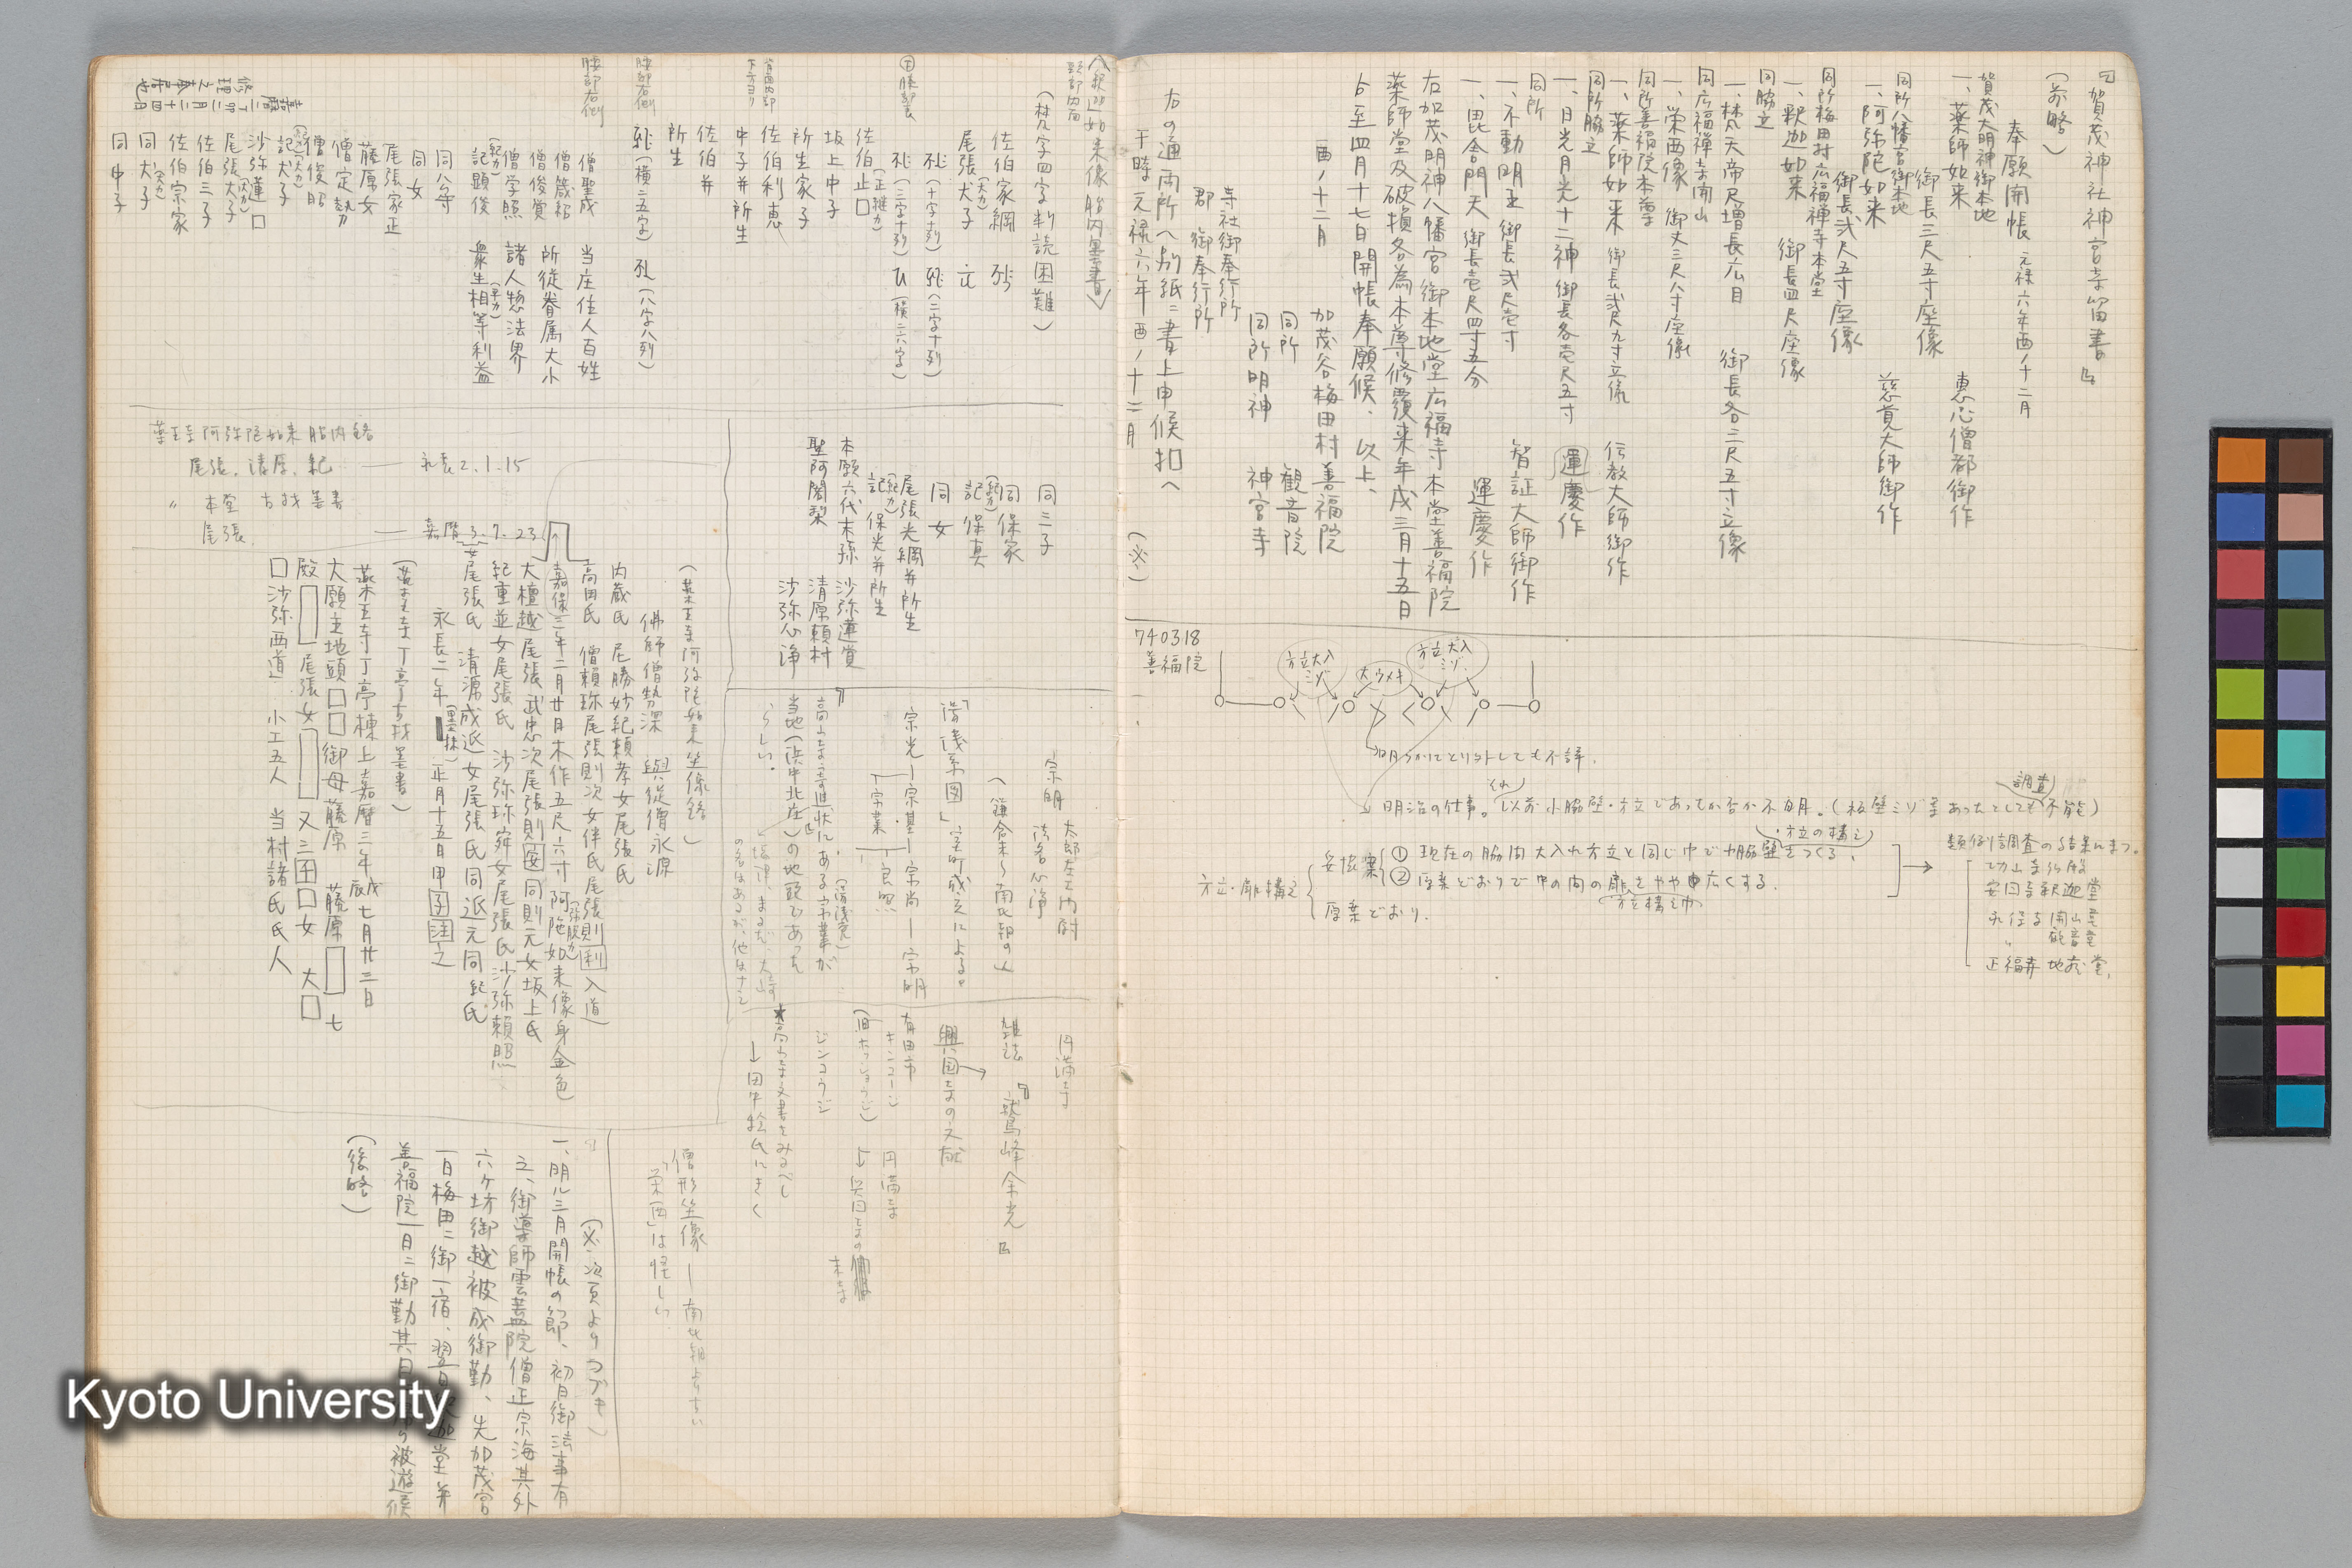 『賀茂神社神宮寺留書』
(前略)
奉願開帳 元禄六年酉ノ十二月
賀茂大明神御本地
一、薬師如来 御長三尺五寸座像 恵心僧都御作
同所八幡宮御本地
一、阿弥陀如来 御長弐尺五寸座像 慈覚大師御作
同所梅田村広福禅寺本堂
一、釈迦如来 御長四尺座像
同脇立
一、梵天帝尺増長広目 御長各二尺五寸立像
同広福禅寺開山
一、栄西像 御丈三尺八寸座像
同所善福院本尊
一、薬師如来 御長弐尺九寸立像 伝教大師御作
同所脇立
一、日光月光十二神 御長各壱尺五寸 運慶作
同所
一、不動明王 御長弐尺壱寸 智証大師御作
一、毘舎門天 御長壱尺四寸五分 運慶作
右加茂明神八幡宮御本地堂広福寺本堂善福院
薬師堂及破損各為本尊修覆来年戌三月十五日
ゟ至四月十七日開帳奉願候、以上、
酉ノ十二月 加茂谷梅田村善福院
同所 観音院
同所明神 神宮寺
寺社御奉行所
郡 御奉行所
右の通両所へ別紙ニ書上申候扣へ
干時元禄六年酉ノ十二月 (※)
740318
善福院
方立大入ミゾ
大ウメキ
方立大入ミゾ
明らかにとり外しても不詳.
明治の仕事。それ以前小脇壁・方立であったか否か不明.(板壁ミゾ等あったとしても調査不能)
方立・扉構え
妥協案
① 現在の脇間大入れ方立と同じ巾で小脇壁をつくる.
・方立の構え
② 原案どおりで中の間の扉をやや巾広くする.
方立構え巾
原案どおり.
類例調査の結果にまつ。
功山寺仏殿
安国寺釈迦堂
永保寺開山堂
〃 観音堂
正福寺地蔵堂.
〈釈迦如来像胎内墨書〉
頸部内面
(梵字四字判読困難)
佐伯家綱
尾張犬子
(大カ)
㊉膝部裏
(十字十列)
(二字十列)
(三字十列)
(横二六字)
佐伯上□
(正種カ)
坂上中子
所生家子
佐伯利恵
中子并所生
背面内部
下方ヨリ
佐伯并
所生
腰部左側
(横二五字)
(八字八列)
腰部右側
僧聖成 当庄住人百姓
僧箴紹 所従眷属大小
僧俊賞 諸人惣法界
僧学照 衆生相等利益
(紀カ)
記顕俊
同八寺
同女
尾張家正
藤原女
僧定勢
僧俊昭
記犬子
沙弥蓮□
尾張犬子
(大カ)
佐伯三子
佐伯宗家
同犬子
同中子
嘉暦二丁卯二月二十四日
修理之春岩也
同三子
同保家
(紀カ)
記保真
同女
尾張光綱并所生
(紀カ)
記保光并所生
本願六代末孫 沙弥蓮賞
聖阿闍梨 清原頼村
沙弥心浄
薬王寺阿弥陀如来胎内銘
尾張、清原、紀 ── 永長2.1.15
〃 本堂 古材墨書
尾張. ── 嘉暦3.7.23
(薬王寺阿弥陀如来坐像銘)
佛師僧勢深 與従僧永源
内蔵氏 尼勝妙紀頼孝女尾張氏
高田氏 僧頼珎尾張則次女伴氏尾張則利入道
嘉保三年二月廿月木作五尺六寸阿陁如来像身金色
(弥脱カ)
大檀越尾張武忠次尾張則安同則元女坂上氏
紀重並女尾張氏 沙弥珎舜女尾張氏沙弥頼照
女尾張氏 清源成近女尾張氏同近元同紀氏
永長二年正月十五日甲子注之
(薬王寺丁亭古材墨書)
薬王寺丁亭棟上嘉暦三年戊辰七月廿三日
大願主地頭□□御母藤原 藤原□七
殿□尾張女□又三田□女 大□
□沙弥西道 小工五人 当村諸氏氏人
宗明 太郎左エ門尉
法名心浄
(鎌倉末〜南北朝の人)
「湯浅系図」室町成立による。
宗光─宗基─宗尚─宗明
宗業 良照
『高山寺寄進状』にある宗業が
(湯浅党)
当地(浜中北庄)の地頭であった
らしい。
円満寺
雑誌 『鷲峰余光』
興国寺の文献
有田市 円満寺
キンコージ
(旧ホッショウジ)
ジンコウジ
興国寺の末寺
★高山寺文書をみるべし
→田中絵氏にきく
僧形坐像─南北朝より古い
「栄西」は怪しい.
(※次頁よりつづき)
一、明ル三月開帳の節、初日御法事有
之、御導師雲蓋院僧正宗海其外
六ケ坊御越被成御勤、先加茂宮
一日梅田ニ御一宿、翌日釈迦堂并
善福院一日ニ御勤其日
被遊候
(後略)
Kyoto University